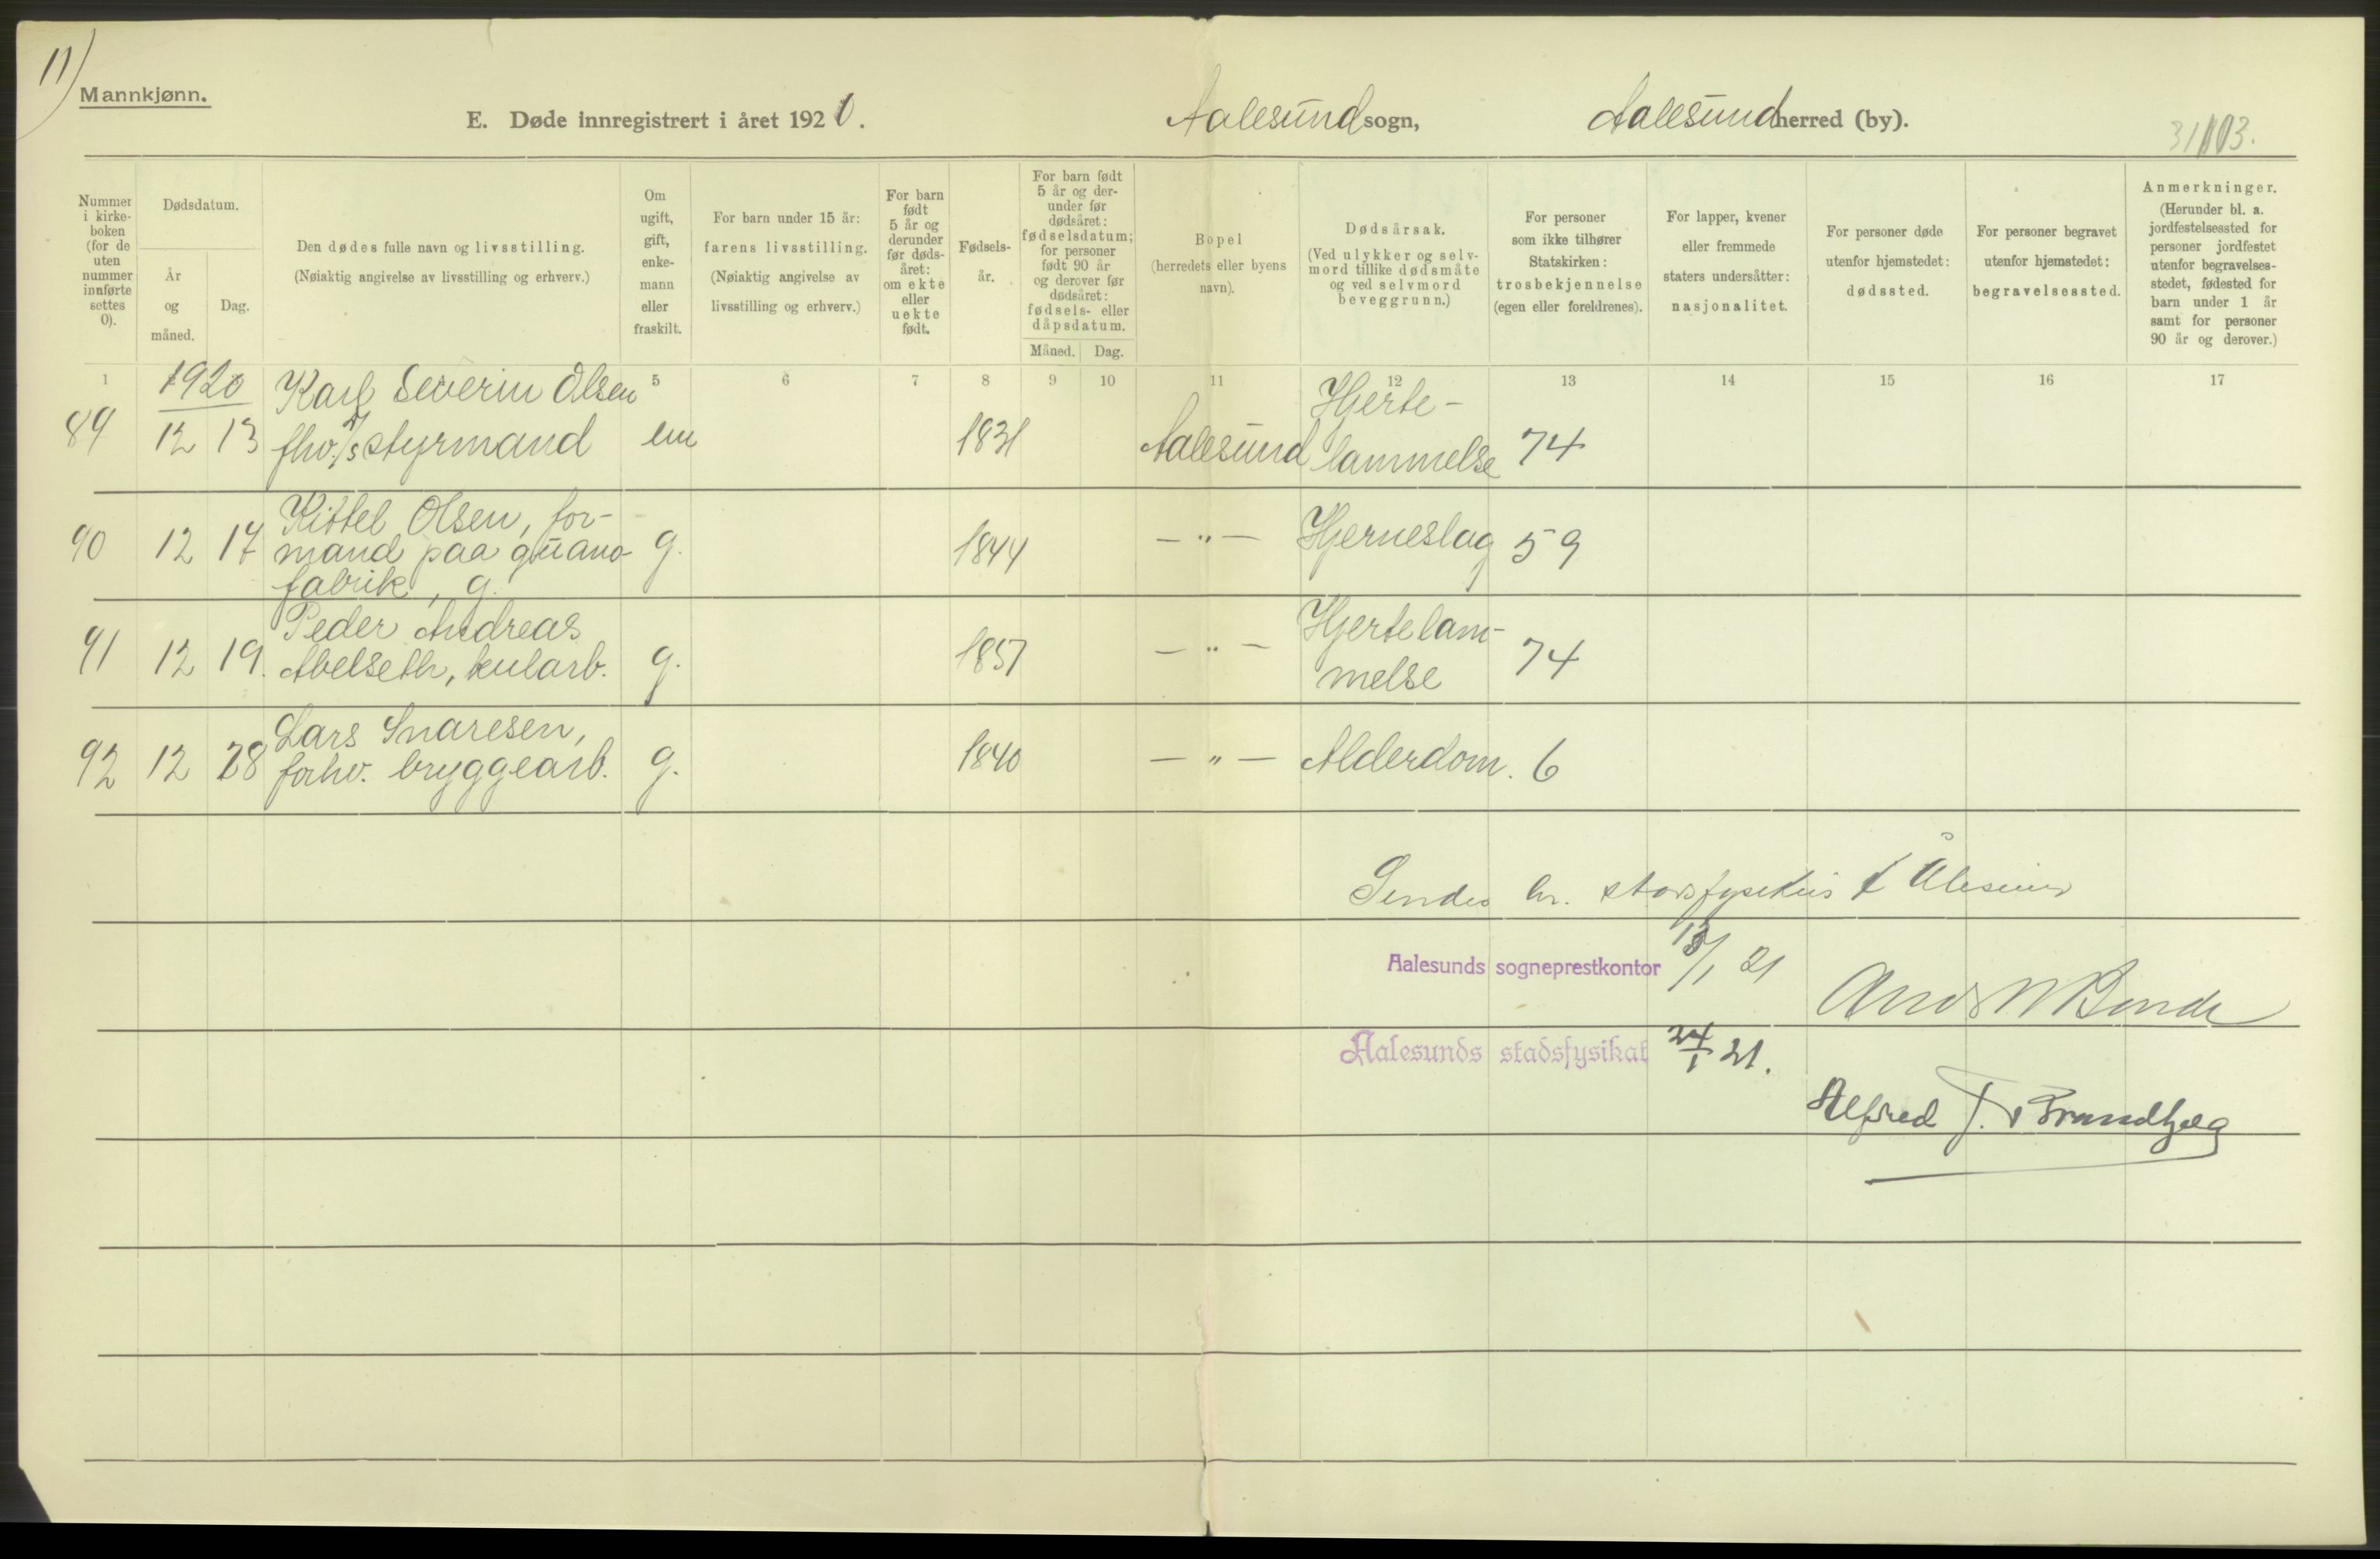 11)
Mannkjønn.
E. Døde innregistrert i året 1920. Aalesund sogn, Aalesund herred (by).
Nummer i kirke-boken (for de uten nummer innførte settes 0).
Dødsdatum.
År og måned.
Dag.
Den dødes fulle navn og livsstilling.
(Nøiaktig angivelse av livsstilling og erhverv.)
Om ugift, gift, enke-mann eller fraskilt.
For barn under 15 år:
farens livsstilling.
(Nøiaktig angivelse av
livsstilling og erhverv.)
For barn født 5 år og derunder før døds-året: om ekte eller uekte født.
Fødsels-år.
For barn født 5 år og der-under før dødsåret: fødselsdatum; for personer født 90 år og derover før dødsåret: fødsels- eller dåpsdatum.
Måned. Dag.
Bopel
(herredets eller byens navn).
Dødsårsak.
(Ved ulykker og selv-mord tillike dødsmåte og ved selvmord beveggrunn.)
For personer som ikke tilhører Statskirken: trosbekjennelse (egen eller foreldrenes).
For lapper, kvener eller fremmede staters undersåtter: nasjonalitet.
For personer døde utenfor hjemstedet: dødssted.
For personer begravet utenfor hjemstedet: begravelsessted.
Anmerkninger.
(Herunder bl. a. jordfestelsessted for personer jordfestet utenfor begravelses-stedet, fødested for barn under 1 år samt for personer 90 år og derover.)
1 5 6 7 8 9 10 11 12 13 14 15 16 17
1920 Karl Severin Olsen Hjerte-
89 12 13 fhv. styrmand em 1831 Aalesund lammelse 74
Kittel Olsen, for-
90 12 17 mand paa guano- g. 1844 — " — Hjerneslag 59
fabrik, g.
Peder Andreas Hjertelam-
91 12 19. Abelseth, kularb. g. 1857 — " — melse 74
Lars Snaresen,
92 12 28 forhv. bryggearb. g. 1840 — " — Alderdom. 6
Sendes hr. stadsfysikus i Ålesund
Aalesunds sogneprestkontor 13/1 21
Aalesunds stadsfysikat 24/1 21.
Alfred